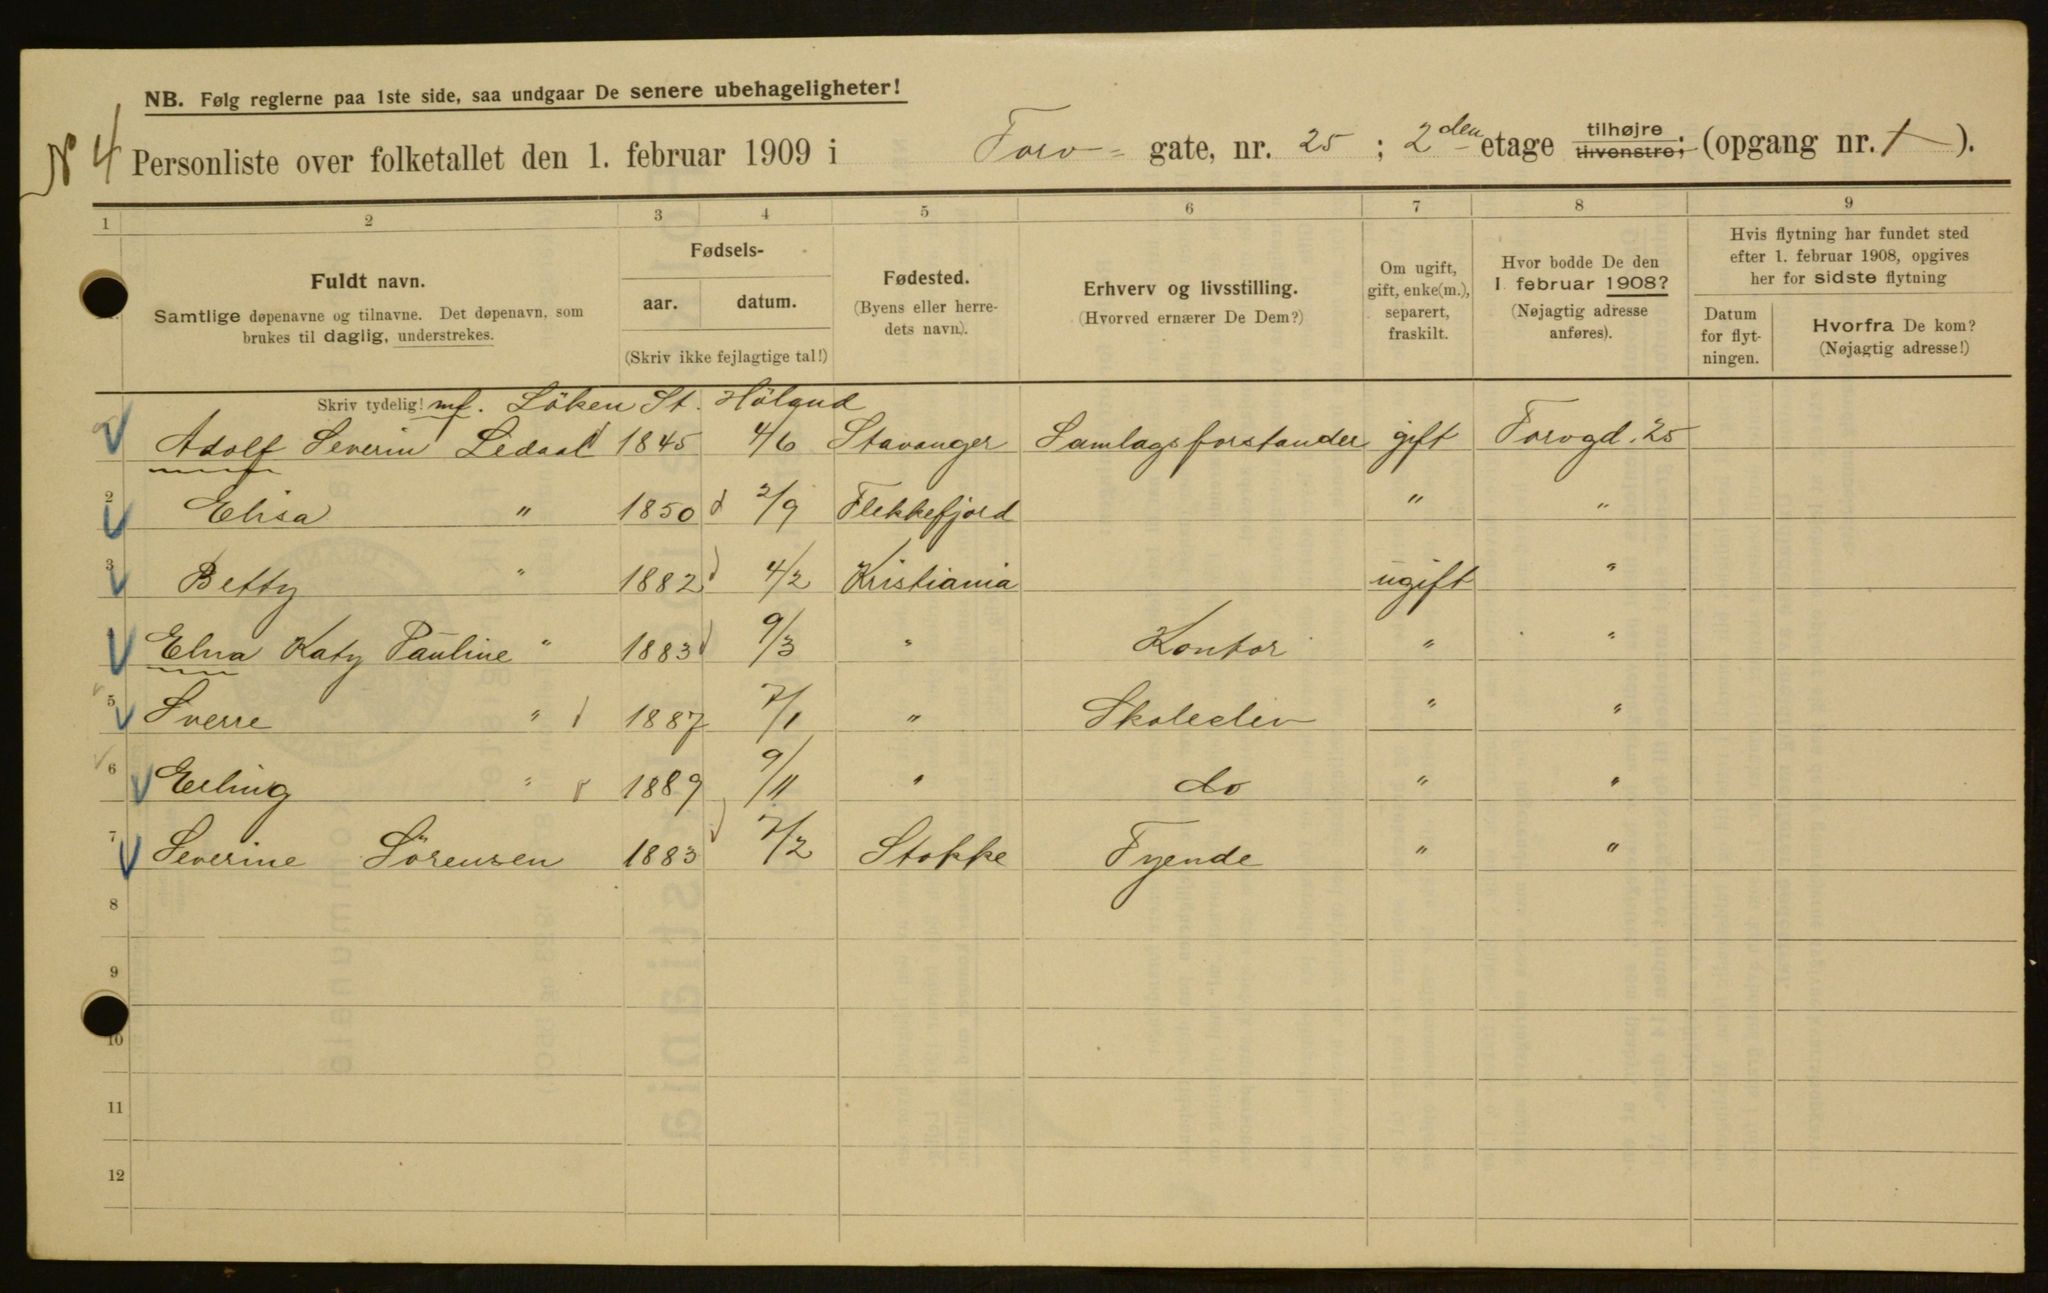 NB. Følg reglerne paa 1ste side, saa undgaar De senere ubehageligheter!
No 4 Personliste over folketallet den 1. februar 1909 i Torv- gate, nr. 25 ; 2den etage tilhøjre tilvenstre; (opgang nr. 1 ).
1 2 3 4 5 6 7 8 9
Fuldt navn.
Samtlige døpenavne og tilnavne. Det døpenavn, som
brukes til daglig, understrekes.
Fødsels-
aar. datum.
(Skriv ikke fejlagtige tal!)
Fødested.
(Byens eller herre-
dets navn).
Erhverv og livsstilling.
(Hvorved ernærer De Dem?)
Om ugift,
gift, enke(m.),
separert,
fraskilt.
Hvor bodde De den
1. februar 1908?
(Nøjagtig adresse
anføres).
Hvis flytning har fundet sted
efter 1. februar 1908, opgives
her for sidste flytning
Datum
for flyt-
ningen.
Hvorfra De kom?
(Nøjagtig adresse!)
Skriv tydelig! mf. Löken St. Höland
Adolf Severin Ledaal 1845 4/6 Stavanger Samlagsforstander gift Torvgd. 25
2 Elisa " 1850 2/9 Flekkefjord " "
3 Betty " 1882 4/2 Kristiania ugift "
Elna Katy Pauline " 1883 9/3 " Kontor " "
5 Sverre " 1887 7/1 " Skoleelev " "
6 Erling " 1889 9/11 " do " "
7 Severine Sörensen 1883 7/2 Stokke Tyende " "
8
9
10
11
12